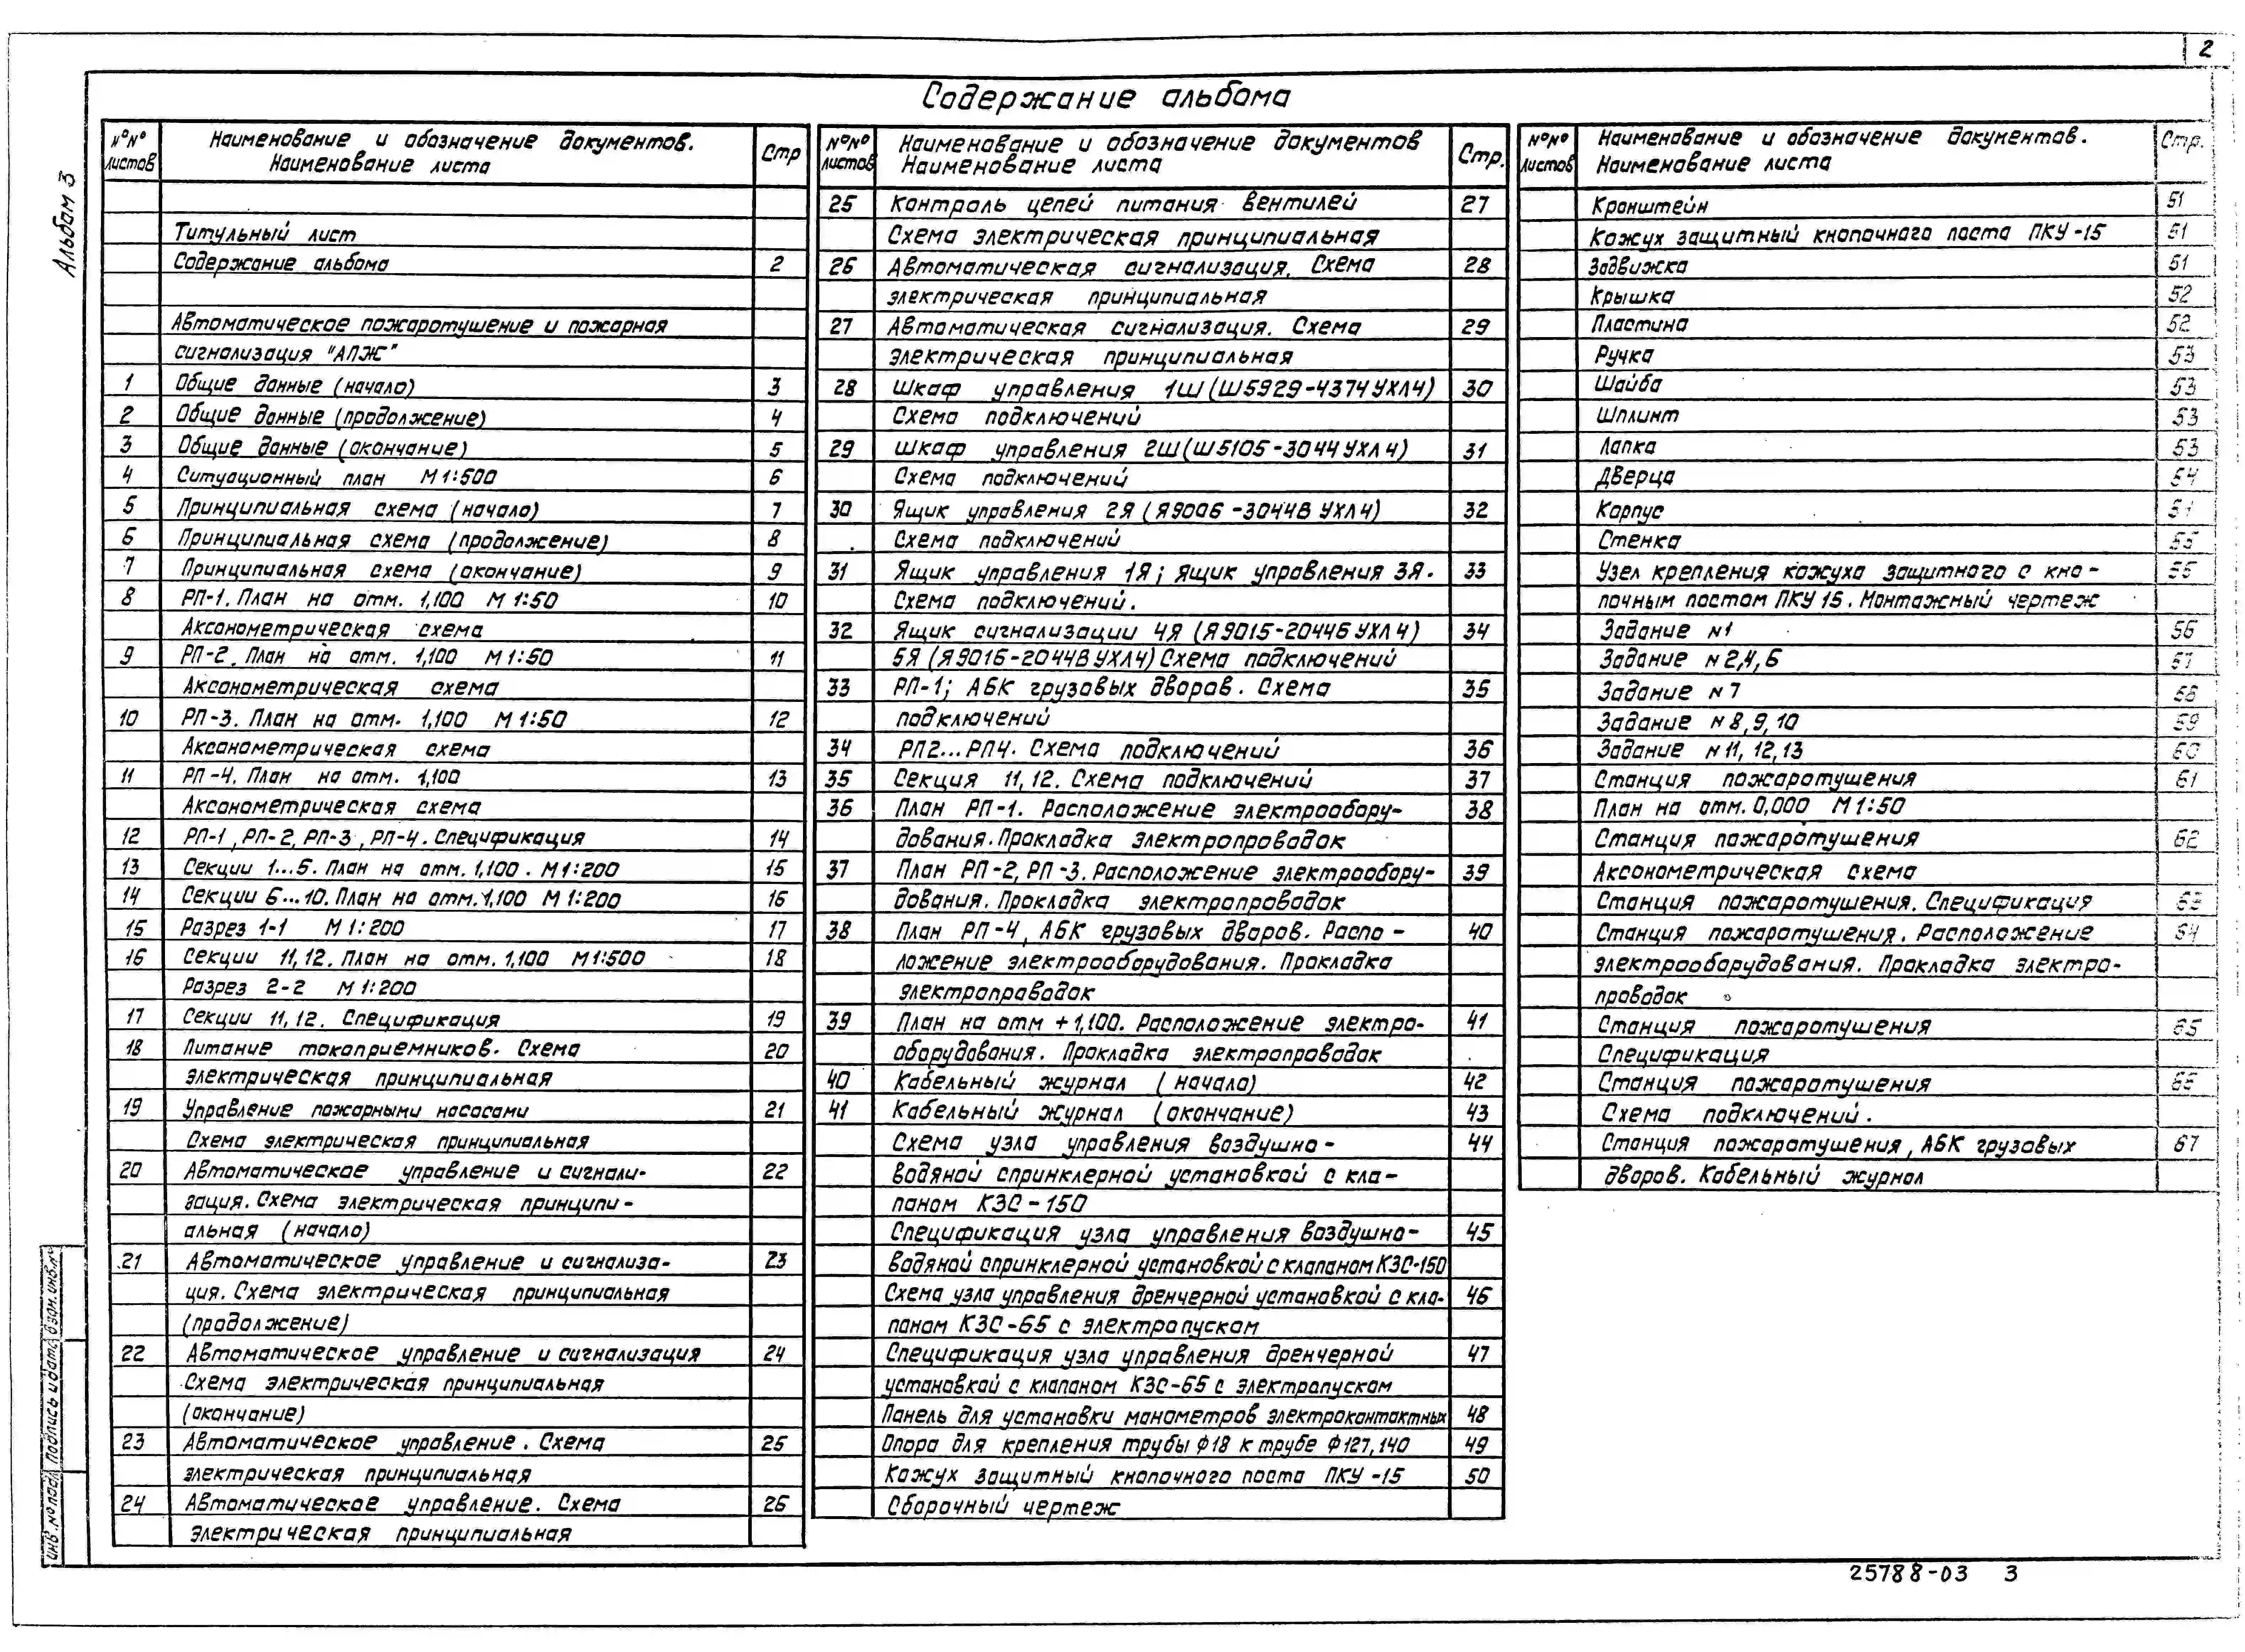 2
Альбом 3
Содержание альбома
№№ листов | Наименование и обозначение документов. Наименование листа | Стр
Титульный лист
Содержание альбома 2
Автоматическое пожаротушение и пожарная
сигнализация "АПЖ"
1 Общие данные (начало) 3
2 Общие данные (продолжение) 4
3 Общие данные (окончание) 5
4 Ситуационный план М 1:500 6
5 Принципиальная схема (начало) 7
6 Принципиальная схема (продолжение) 8
7 Принципиальная схема (окончание) 9
8 РП-1. План на отм. 1,100 М 1:50 10
Аксонометрическая схема
9 РП-2. План на отм. 1,100 М 1:50 11
Аксонометрическая схема
10 РП-3. План на отм. 1,100 М 1:50 12
Аксонометрическая схема
11 РП-4. План на отм. 1,100 13
Аксонометрическая схема
12 РП-1, РП-2, РП-3, РП-4. Спецификация 14
13 Секции 1...5. План на отм. 1,100. М 1:200 15
14 Секции 6...10. План на отм. 1,100 М 1:200 16
15 Разрез 1-1 М 1:200 17
16 Секции 11, 12. План на отм. 1,100 М1:500 18
Разрез 2-2 М 1:200
17 Секции 11, 12. Спецификация 19
18 Питание токоприемников. Схема 20
электрическая принципиальная
19 Управление пожарными насосами 21
Схема электрическая принципиальная
20 Автоматическое управление и сигнали- 22
зация. Схема электрическая принципи-
альная (начало)
21 Автоматическое управление и сигнализа- 23
ция. Схема электрическая принципиальная
(продолжение)
22 Автоматическое управление и сигнализация 24
Схема электрическая принципиальная
(окончание)
23 Автоматическое управление. Схема 25
электрическая принципиальная
24 Автоматическое управление. Схема 26
электрическая принципиальная
№№ листов | Наименование и обозначение документов Наименование листа | Стр.
25 Контроль цепей питания вентилей 27
Схема электрическая принципиальная
26 Автоматическая сигнализация. Схема 28
электрическая принципиальная
27 Автоматическая сигнализация. Схема 29
электрическая принципиальная
28 Шкаф управления 1Ш (Ш5929-4374УХЛ4) 30
Схема подключений
29 Шкаф управления 2Ш (Ш5105-3044УХЛ4) 31
Схема подключений
30 Ящик управления 2Я (Я9006-3044В УХЛ4) 32
Схема подключений
31 Ящик управления 1Я; ящик управления 3Я. 33
Схема подключений.
32 Ящик сигнализации 4Я (Я9015-2044БУХЛ4) 34
5Я (Я9016-2044ВУХЛ4) Схема подключений
33 РП-1; АБК грузовых дворов. Схема 35
подключений
34 РП2...РП4. Схема подключений 36
35 Секция 11, 12. Схема подключений 37
36 План РП-1. Расположение электрообору- 38
дования. Прокладка электропроводок
37 План РП-2, РП-3. Расположение электрообору- 39
дования. Прокладка электропроводок
38 План РП-4, АБК грузовых дворов. Распо- 40
ложение электрооборудования. Прокладка
электропроводок
39 План на отм +1,100. Расположение электро- 41
оборудования. Прокладка электропроводок
40 Кабельный журнал (начало) 42
41 Кабельный журнал (окончание) 43
Схема узла управления воздушно- 44
водяной спринклерной установкой с кла-
паном КЗС-150
Спецификация узла управления воздушно- 45
водяной спринклерной установкой с клапаном КЗС-150
Схема узла управления дренчерной установкой с кла- 46
паном КЗС-65 с электропуском
Спецификация узла управления дренчерной 47
установкой с клапаном КЗС-65 с электропуском
Панель для установки манометров электроконтактных 48
Опора для крепления трубы Ф18 к трубе Ф127, 140 49
Кожух защитный кнопочного поста ПКУ-15 50
Сборочный чертеж
№№ листов | Наименование и обозначение документов. Наименование листа | Стр.
Кронштейн 51
Кожух защитный кнопочного поста ПКУ-15 51
Задвижка 51
Крышка 52
Пластина 52
Ручка 53
Шайба 53
Шплинт 53
Лапка 53
Дверца 54
Корпус
Стенка 55
Узел крепления кожуха защитного с кно- 55
почным постом ПКУ 15. Монтажный чертеж
Задание №1 56
Задание №2,4,6 57
Задание №7 58
Задание №8,9,10 59
Задание №11, 12,13 60
Станция пожаротушения 61
План на отм. 0,000 М 1:50
Станция пожаротушения 62
Аксонометрическая схема
Станция пожаротушения. Спецификация 63
Станция пожаротушения. Расположение 64
электрооборудования. Прокладка электро-
проводок
Станция пожаротушения 65
Спецификация
Станция пожаротушения 66
Схема подключений.
Станция пожаротушения, АБК грузовых 67
дворов. Кабельный журнал
Инв.№подл Подпись и дата Взам.инв.№
25788-03 3